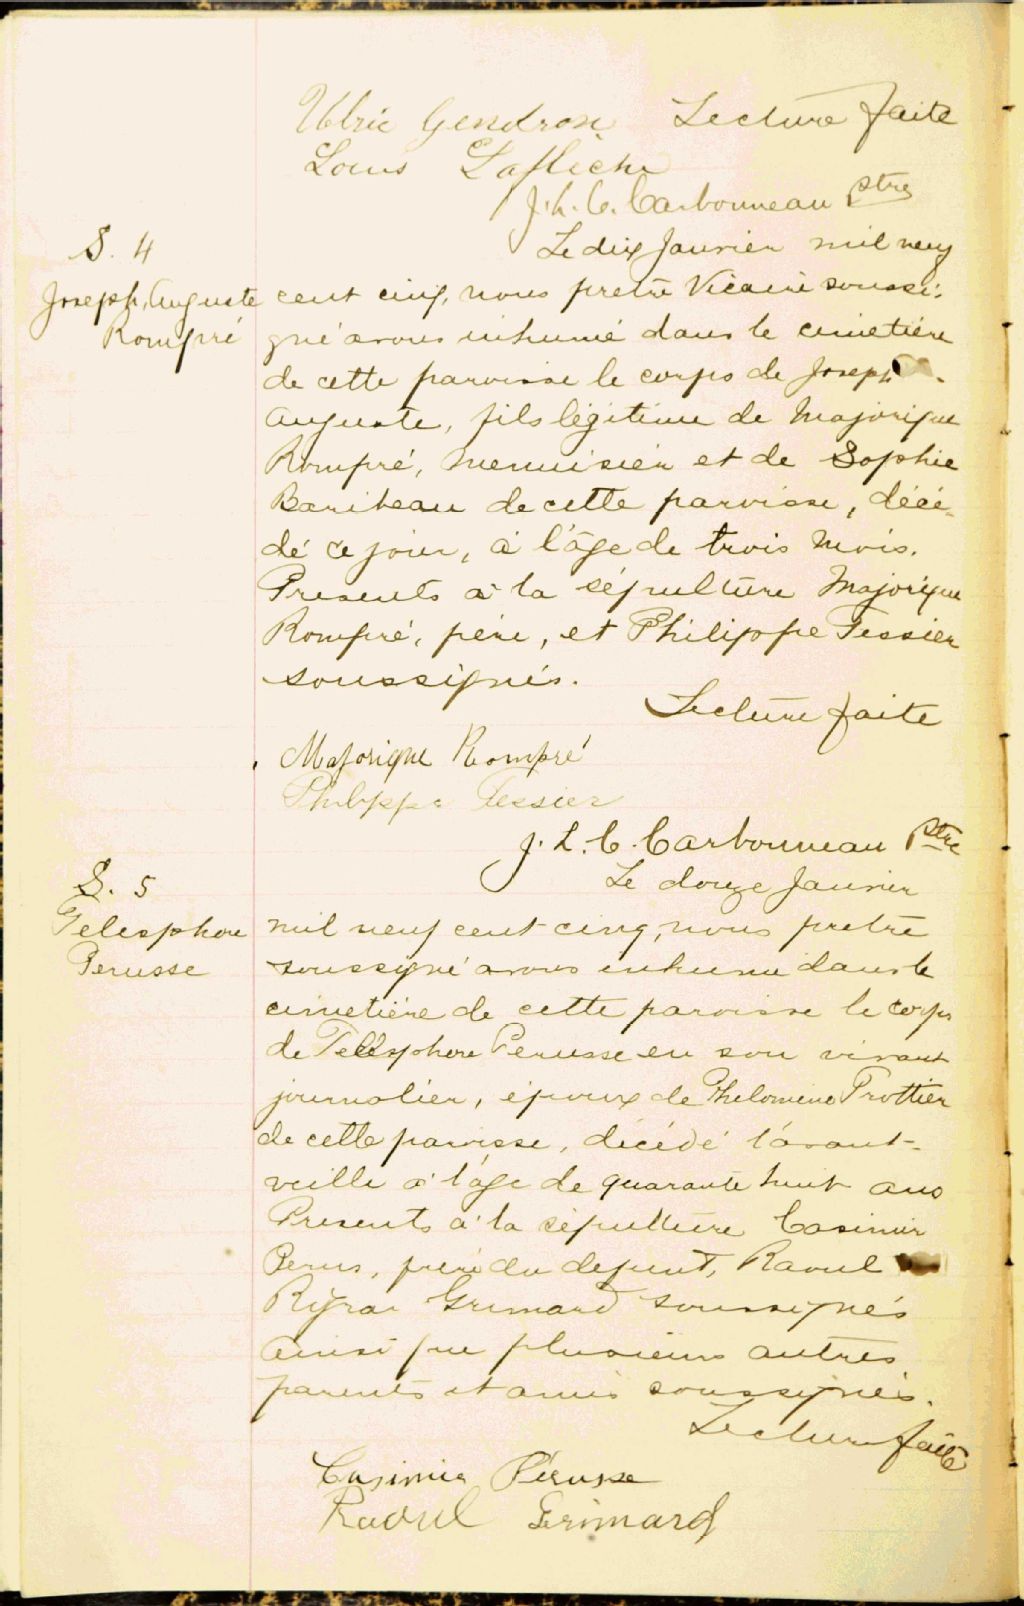 Ulric Gendron Lecture faite
Louis Laflèche
J. L. C. Carbonneau Ptre
S. 4
Le dix Janvier mil neuf
Joseph, Auguste
Rompré
cent cinq, nous prêtre Vicaire soussi-
gné avons inhumé dans le cimetière
de cette paroisse le corps de Joseph
Auguste, fils légitime de Majorique
Rompré, menuisier et de Sophie
Baribeau de cette paroisse, décé-
dé ce jour, à l'âge de trois mois.
Presents à la sépulture Majorique
Rompré, père, et Philippe Tessier
soussignés.
Lecture faite
Majorique Rompré
Philippe Tessier
J. L. C. Carbonneau Ptre
S. 5
Le douze Janvier
Telesphore
Perusse
mil neuf cent cinq, nous pretre
soussigné avons inhumé dans le
cimetière de cette paroisse le corps
de Télésphore Perusse en son vivant
journalier, époux de Philomène Trottier
de cette paroisse, décédé l'avant-
veille à l'âge de quarante huit ans
Presents à la sépulture Casimir
Perus, frère du defunt, Raoul
Grimard soussignés
ainsi que plusieurs autres
parents et amis soussignés.
Lecture faite
Casimir Pérusse
Raoul Grimard